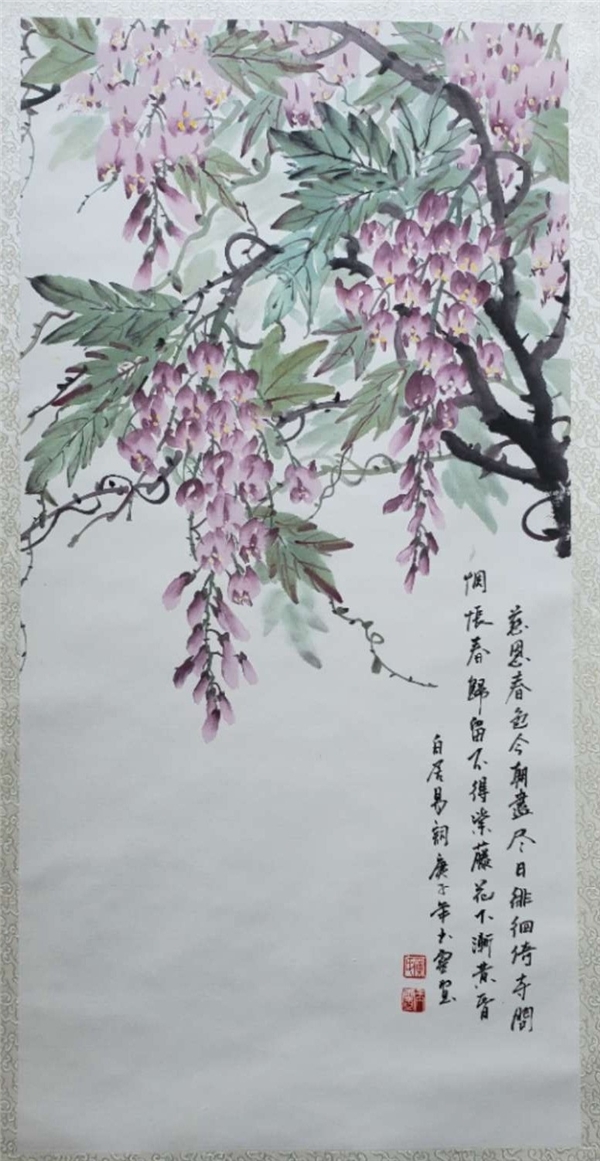 慈恩春色今朝盡尽日徘徊倚寺問
惆悵春歸留不得紫藤花下漸黄昏
白居易詞庚子年